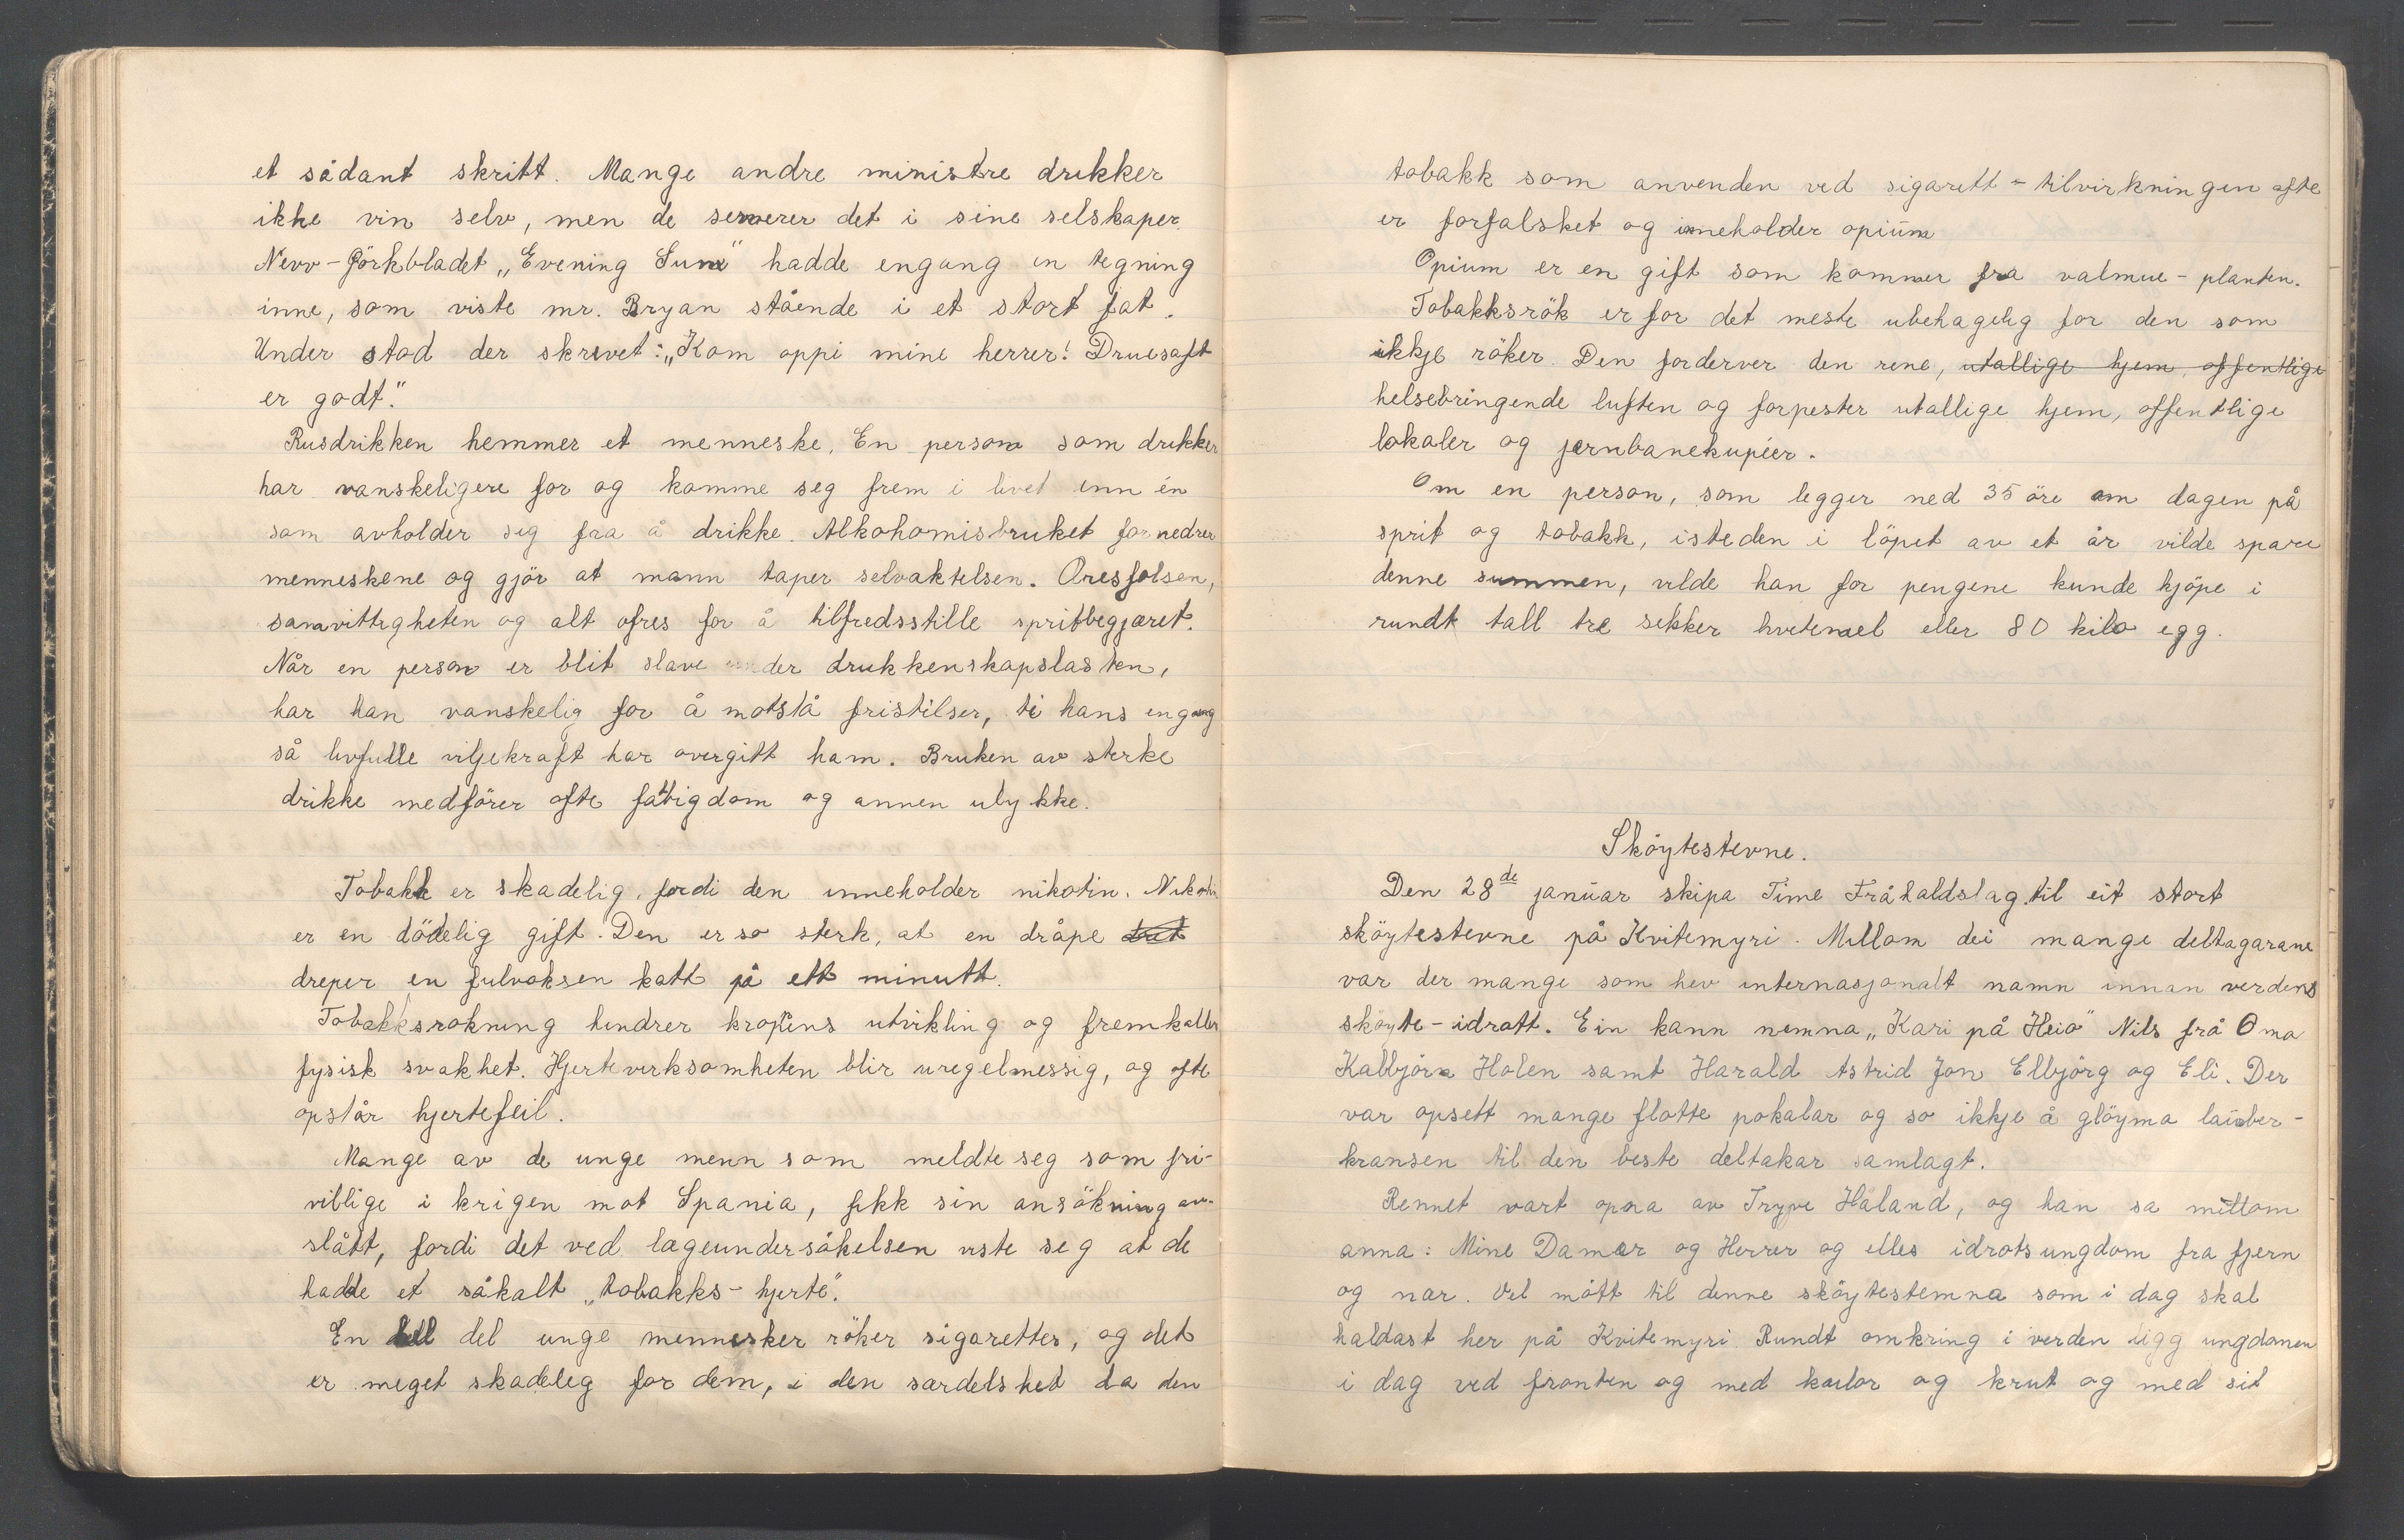 et sådant skritt. Mange andre ministre drikker
ikke vin selv, men de serverer det i sine selskaper.
New-Jörkbladet „Evening Sun" hadde engang en tegning
inne, som viste mr. Bryan stående i et stort fat.
Under stod der skrevet: „Kom oppi mine herrer! Druesaft
er godt".
Rusdrikken hemmer et menneske. En person som drikker
har vanskeligere for og komme seg frem i livet enn én
som avholder seg fra å drikke. Alkohomisbruket fornedrer
menneskene og gjör at mann taper selvaktelsen. Æresfølsen,
samvittigheten og alt ofres for å tilfredsstille spritbegjæret.
Når en person er blit slave under drukkenskapslasten,
har han vanskelig for å motstå fristelser, ti hans engang
så livfulle viljekraft har overgitt ham. Bruken av sterke
drikke medförer ofte fattigdom og annen ulykke.
Tobakk er skadelig, fordi den inneholder nikotin. Nikotin
er en dödelig gift. Den er so sterk, at en dråpe
dreper en fulvoksen katt på ett minutt.
Tobakksrokning hindrer kroppens utvikling og fremkaller
fysisk svakhet. Hjertevirksomheten blir uregelmessig, og ofte
opstår hjertefeil.
Mange av de unge menn som meldte seg som fri-
villige i krigen mot Spania, fikk sin ansökning av-
slått, fordi det ved lægeundersökelsen viste seg at de
hadde et såkalt „tobakks-hjerte".
En del unge mennesker röker sigarettes, og det
er meget skadeleg for dem, i den særdelshet da den
tobakk som anvenden ved sigarett-tilvirkningen ofte
er forfalsket og inneholder opium
Opium er en gift som kommer fra valmue-planten.
Tobakksrök er for det meste ubehagelig for den som
ikkje röker. Den forderver den rene, utallige hjem, offentlige
helsebringende luften og forpester utallige hjem, offentlige
lokaler og jernbanekupéer.
Om en person, som legger ned 35 öre om dagen på
sprit og tobakk, isteden i löpet av et år vilde spare
denne summen, vilde han for pengene kunde kjöpe i
rundt tall tre sekker hvetemel eller 80 kilo egg.
Sköytestevne.
Den 28de januar skipa Time Fråhaldslag til eit stort
sköytestevne på Kvitemyri. Millom dei mange deltagarane
var der mange som hev internasjonalt namn innan verdens
sköyte-idrott. Ein kann nemna „Kari på Heio" Nils frå Oma
Kalbjörn Holen samt Harald Astrid Jon Elbjörg og Eli. Der
var opsett mange flotte pokalar og so ikkje å glöyma laurber-
kransen til den beste deltakar samlagt.
Rennet vart opna av Trygve Håland, og han sa millom
anna: Mine Damer og Herrer og elles idrotsungdom fra fjern
og nær. Vel mött til denne sköytestemna som i dag skal
haldast her på Kvitemyri. Rundt omkring i verden ligg ungdomen
i dag ved fronten og med kulor og krut og med sit